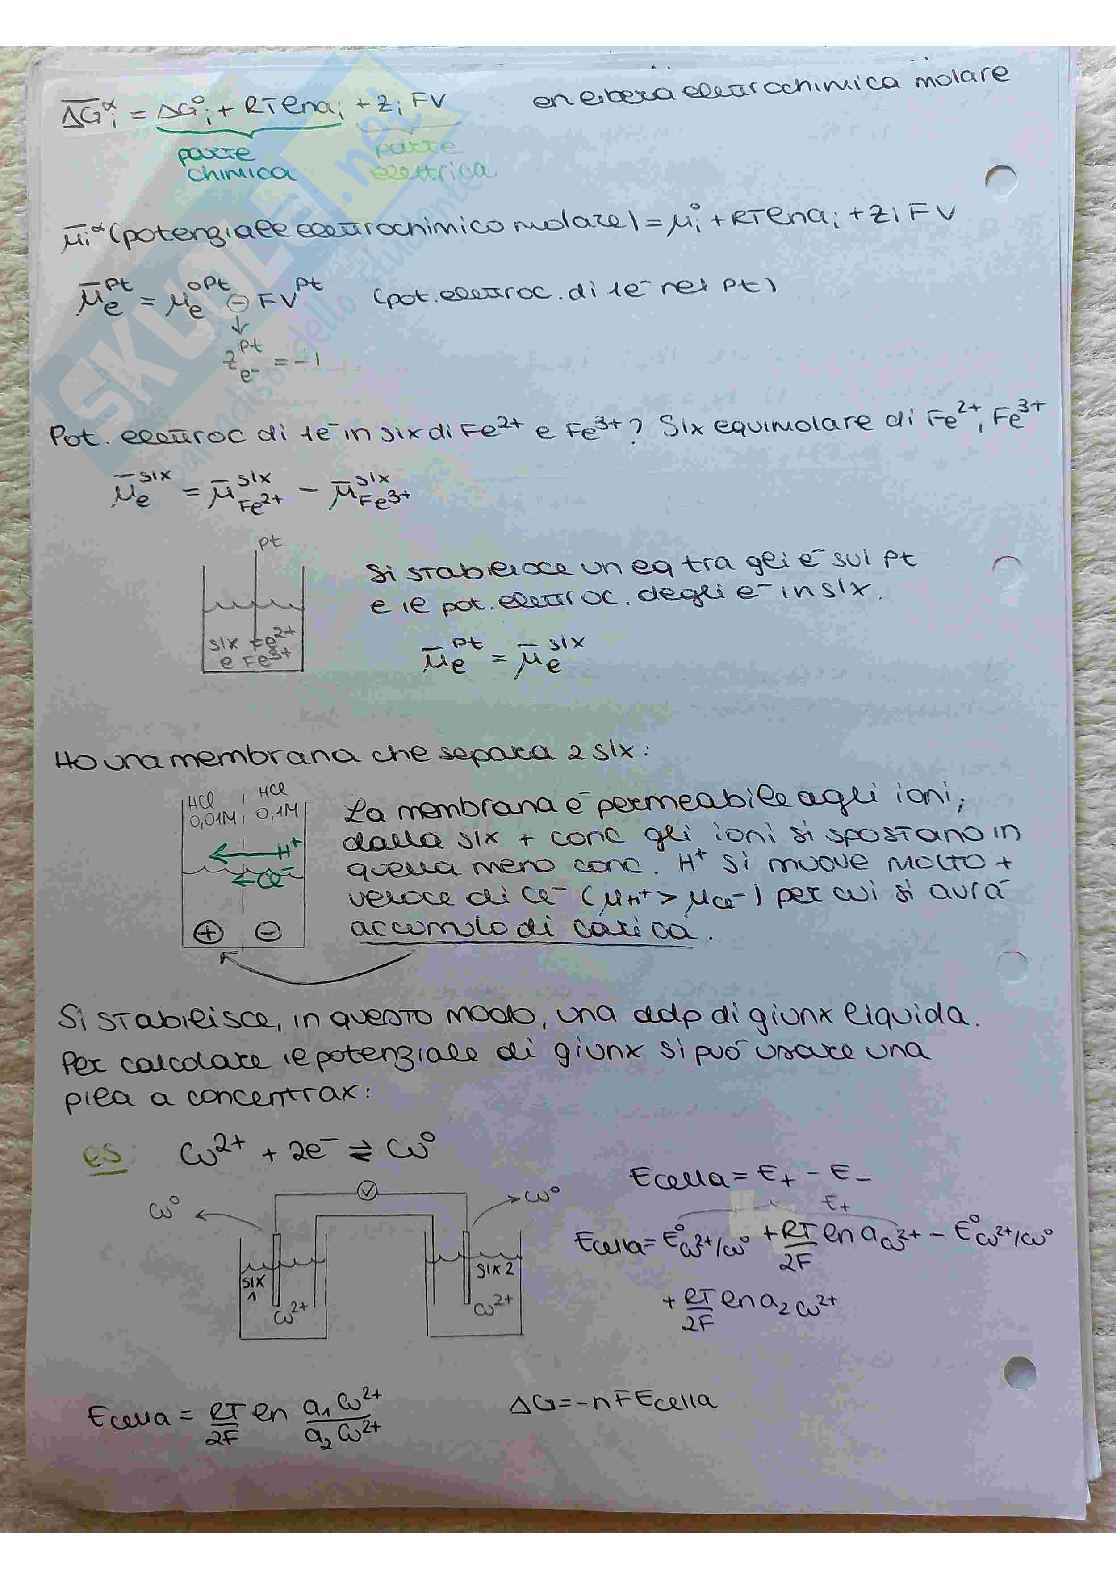 ΔG̅ᵢᵅ = ΔG°ᵢ + RTlnaᵢ + zᵢFV en libera elettrochimica molare
parte chimica parte elettrica
μ̅ᵢᵅ (potenziale elettrochimico molare) = μ°ᵢ + RTlnaᵢ + zᵢFV
μ̅ₑᴾᵗ = μₑ°ᴾᵗ ⊖ FVᴾᵗ (pot. elettroc. di 1e⁻ nel Pt)
↓
zₑ₋ᴾᵗ = -1
Pot. elettroc di 1e⁻ in slx di Fe²⁺ e Fe³⁺? Slx equimolare di Fe²⁺, Fe³⁺
μ̅ₑ^slx = μ̅^slx Fe²⁺ - μ̅^slx Fe³⁺
pt
slx Fe²⁺
e Fe³⁺
Si stabilisce un eq tra gli e⁻ sul pt
e il pot. elettroc. degli e⁻ in slx.
μ̅ₑᴾᵗ = μ̅ₑ^slx
Ho una membrana che separa 2 slx:
HCl HCl
0,01M 0,1M
H⁺
Cl⁻
⊕ ⊖
La membrana è permeabile agli ioni,
dalla slx + conc gli ioni si spostano in
quella meno conc. H⁺ si muove molto +
veloce di Cl⁻ (μH⁺ > μCl⁻) per cui si avrà
accumulo di carica.
Si stabilisce, in questo modo, una ddp di giunx liquida.
Per calcolare il potenziale di giunx si può usare una
pila a concentrax:
es: Cu²⁺ + 2e⁻ ⇄ Cu⁰
Cu⁰ V Cu⁰
slx 1 Cu²⁺
slx 2 Cu²⁺
Ecella = E₊ - E₋
E₊
Ecella = E°Cu²⁺/Cu⁰ + RT/2F ln aCu²⁺ - E°Cu²⁺/Cu⁰
+ RT/2F ln a₂Cu²⁺
Ecella = RT/2F ln a₁Cu²⁺/a₂Cu²⁺ ΔG = -nFEcella
SKUOLA.net